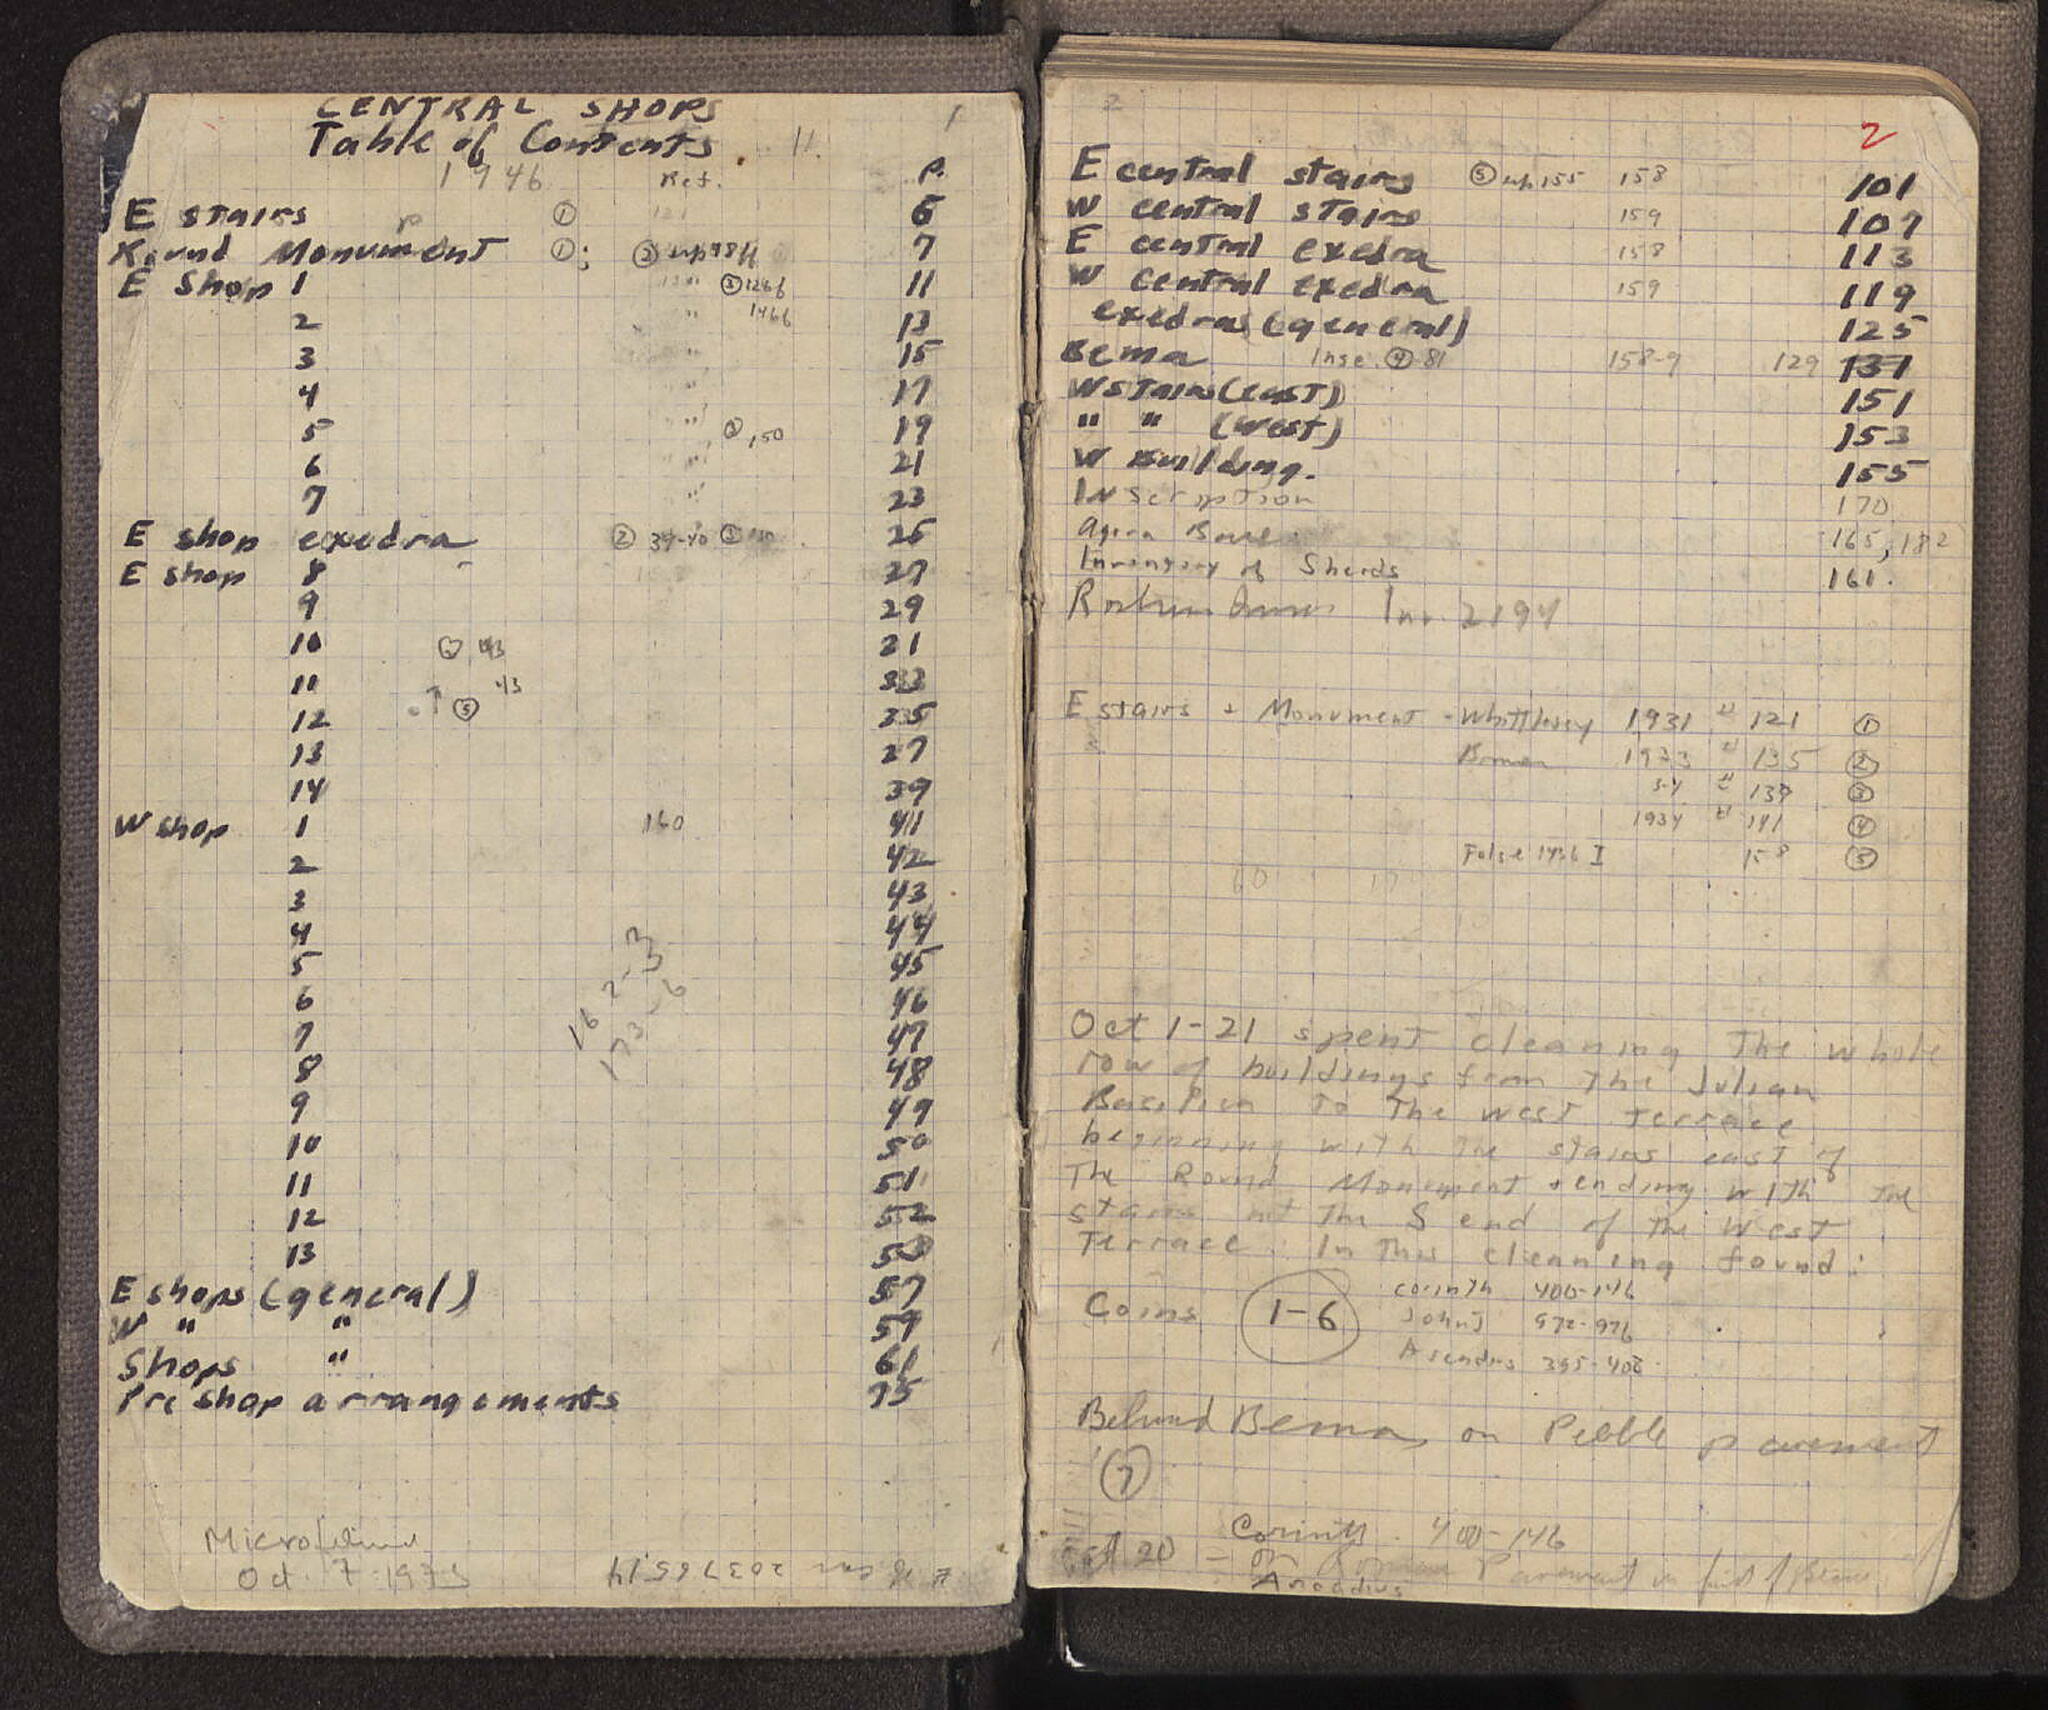 1
CENTRAL SHOPS
Table of Contents. II.
1946 Ref. P.
E stairs ① 121 5
Round Monument ①; ③ 7
E Shop 1 ③ 126b 11
2 " 146b 13
3 " 15
4 " 17
5 " 150 19
6 " 21
7 " 23
E shop exedra ② 39-40 25
E shop 8 27
9 29
10 43 21
11 43 33
12 ⑤ 35
13 27
14 39
W shop 1 160 41
2 42
3 43
4 44
5 45
6 46
7 47
8 48
9 49
10 50
11 51
12 52
13 53
162-3
173-6
E shops (general) 57
W " " 59
Shops " 61
Pre shop arrangements 75
Microfilmed
Oct. 7 1975
2
2
E central stairs ⑤ 155 158 101
W central stairs 159 107
E central exedra 158 113
W central exedra 159 119
exedras (general) 125
Bema Insc. ④ 81 158-9 129 131
W stairs (east) 151
" " (west) 153
W Building. 155
Inscription 170
Agora 165, 182
Inventory of Sherds 161.
Inv. 2194
E stairs + Monument - Whittlesey 1931 121 ①
1933 135 ②
3-4 139 ③
1934 141 ④
1936 I 158 ⑤
Oct 1-21 spent cleaning the whole
row of buildings from the Julian
Basilica to the west terrace
beginning with the stairs east of
the Round Monument + ending with the
stairs at the S end of the West
Terrace. In this cleaning found:
Coins 1-6 Corinth 400-146
John I 972-976
Arcadius 395-408
Behind Bema, on Pebble pavement
⑦
Corinth 400-146
Oct 20 = on Roman Pavement in front of
Arcadius